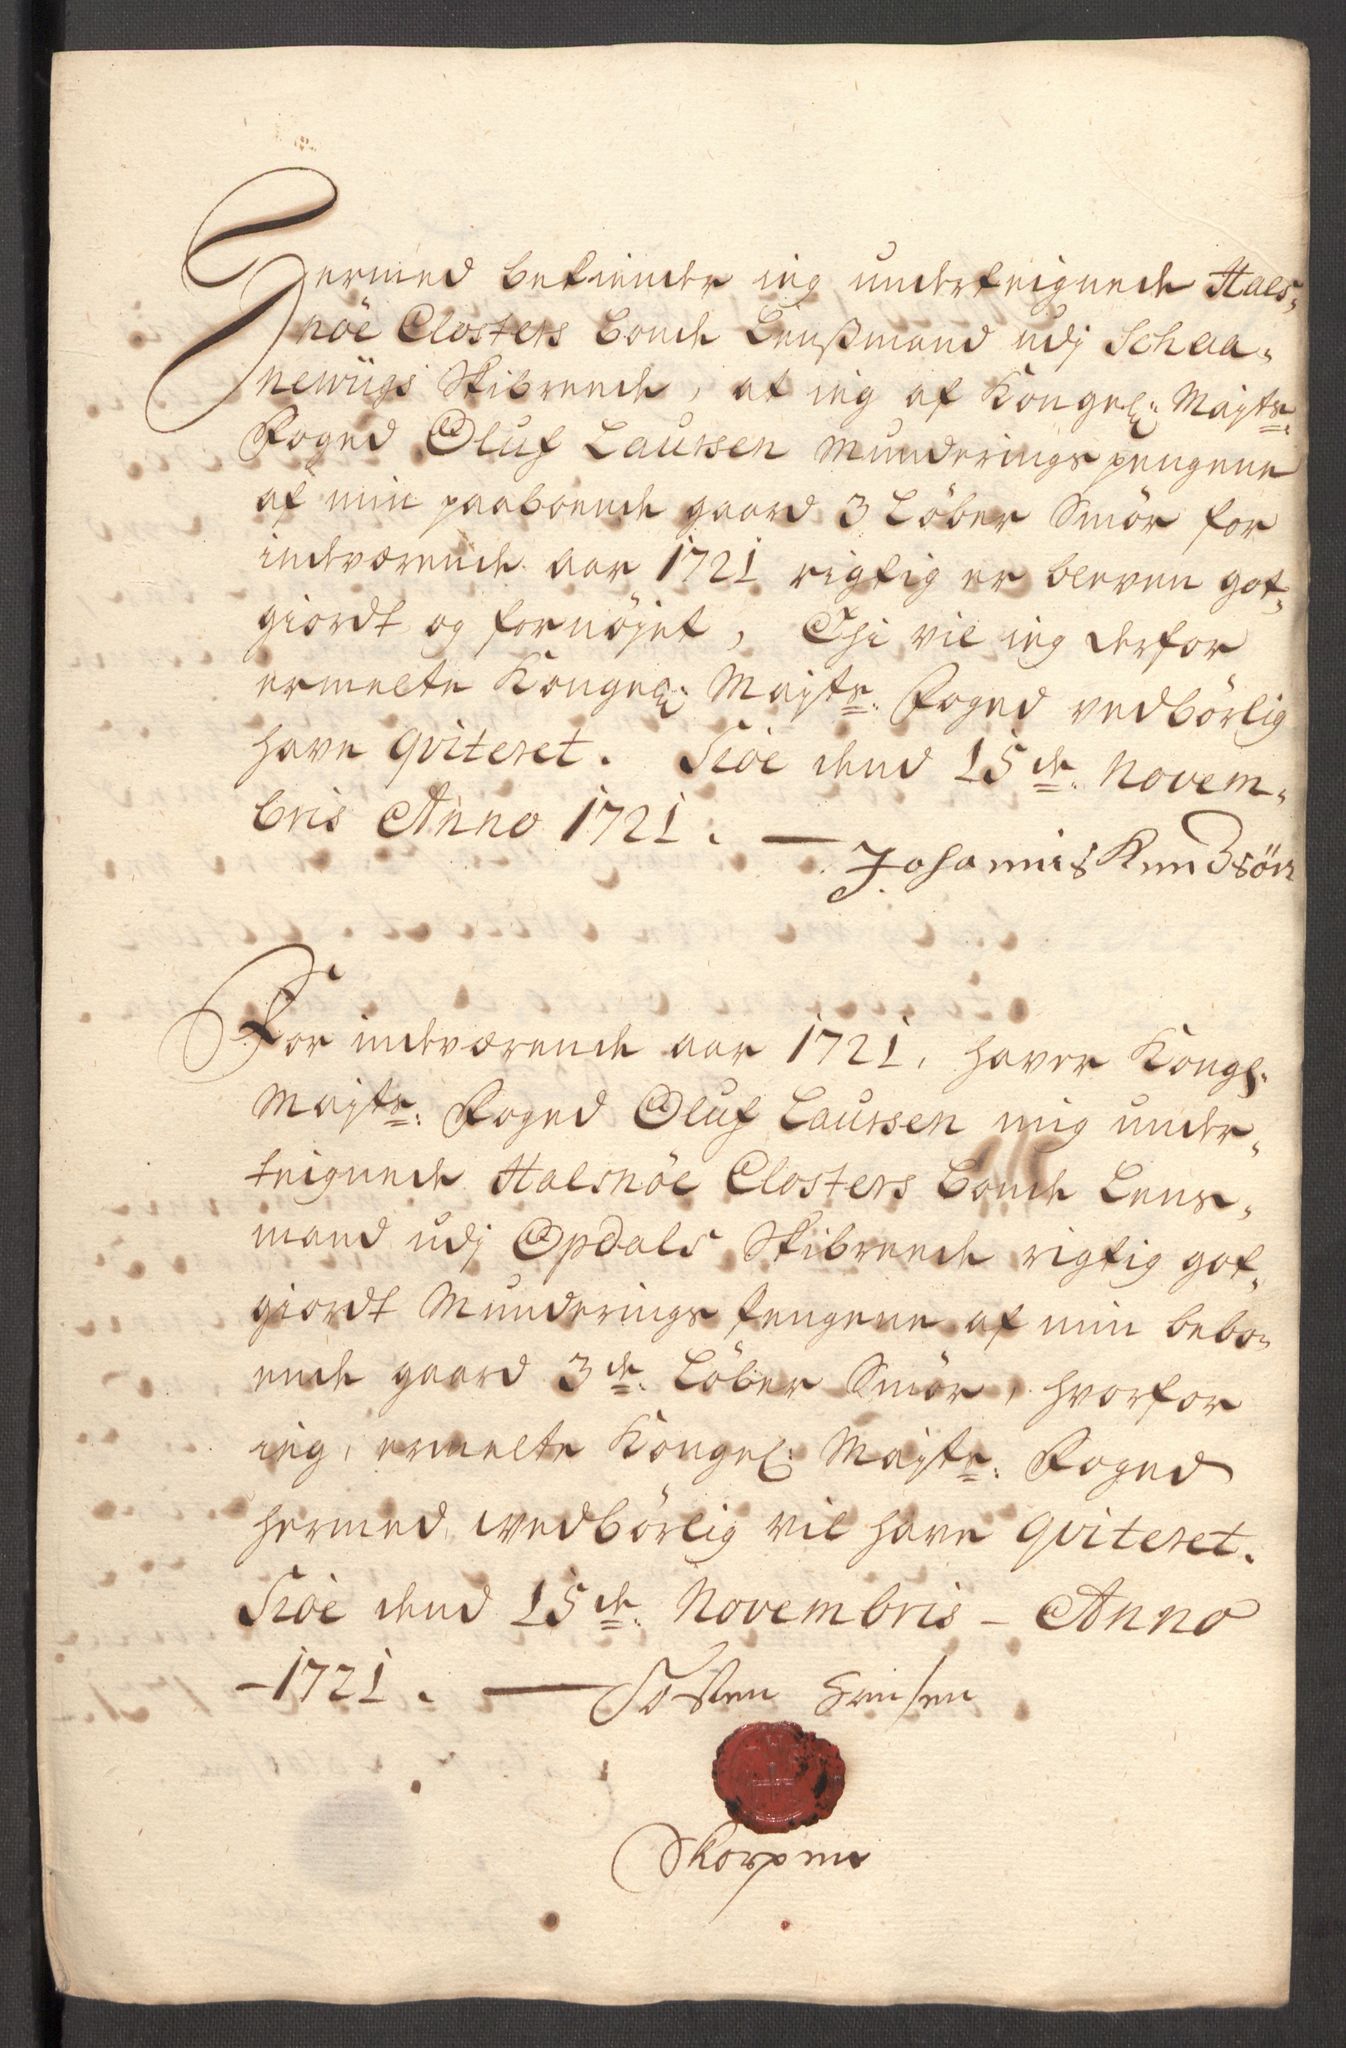 Hermed bekiender ieg underteignede Hals-
nöe Closters bonde Lenßmand udj Schaa-
newiigs Skibrede, at ieg af Kongel: Maÿts:
Foged Oluf Laursen Munderings pengene
af min paaboende gaard 3 Löber Smör for
indeværende aar 1721 rigtig er bleven got-
giordt og fornöjet, Thi vil ieg derfor
ermelte Kongel: Maÿts: Foged vedbörlig
have qviteret. Siöe dend 15de: Novem-
bris Anno 1721.
Johannis Knudsön
For indeværende aar 1721, haver Kongl:
Maÿts: Foged Oluf Laursen mig under-
teignede Halsnöe Closters bonde Lens-
mand udj Opdals Skibrede rigtig got-
giordt Munderings pengene af min bebo-
ende gaard 3de: Löber Smör, hvorfor
ieg, ermelte Kongel: Maÿts: Foged
hermed wedbörlig vil have qviteret.
Siöe dend 15de: Novembris - Anno
-1721. Tosten
Skorpen